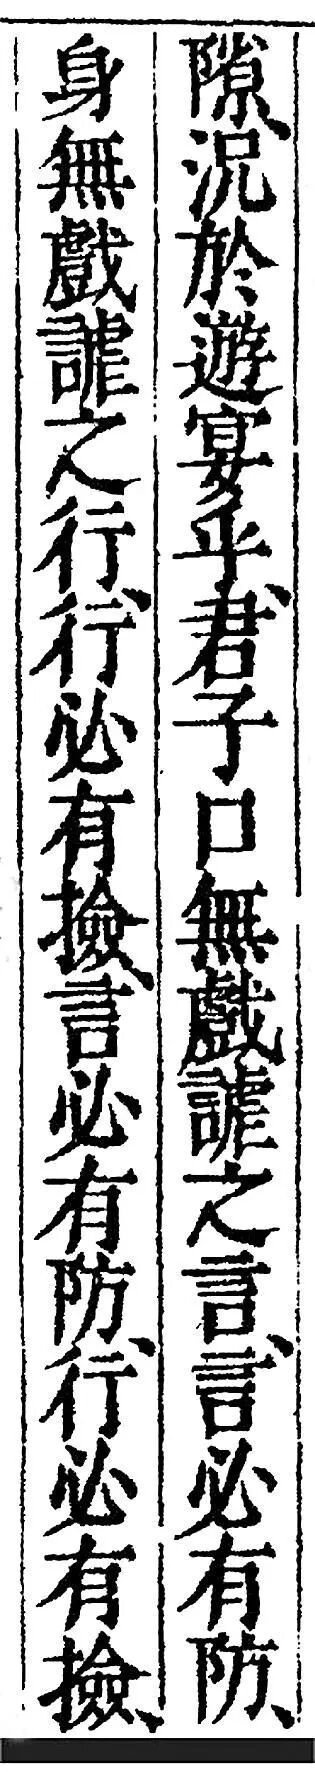 隙、況於遊宴乎、君子口無戲謔之言、言必有防、
身無戲謔之行、行必有撿、言必有防、行必有撿、